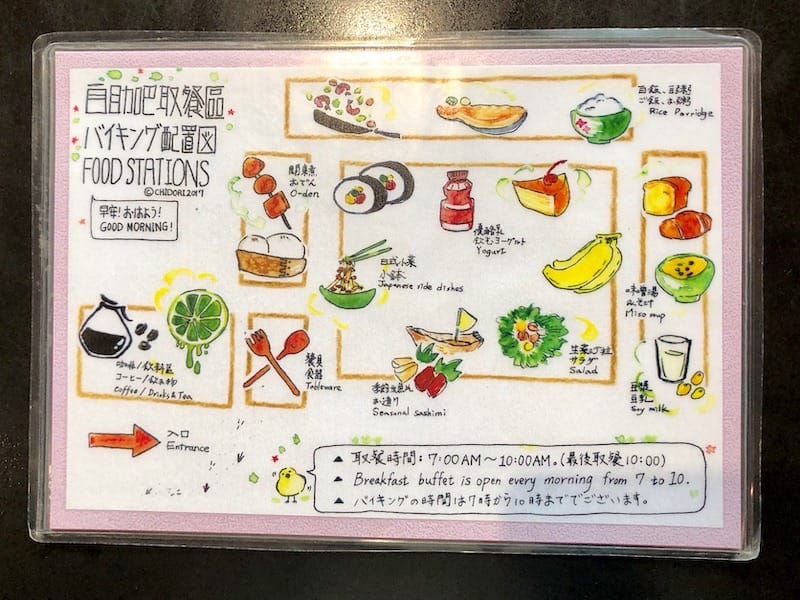 自助吧取餐區
バイキング配置図
FOOD STATIONS
©CHIDORI2017
早安! おはよう!
GOOD MORNING!
白飯、豆粥
ご飯、お粥
Rice Porridge
關東煮
おでん
O-den
優酪乳
飲むヨーグルト
Yogurt
日式小菜
小鉢
Japanese side dishes
味噌湯
みそ汁
Miso soup
咖啡/飲料區
コーヒー/飲み物
Coffee / Drinks & Tea
餐具
食器
Tableware
季節生魚片
お造り
Seasonal sashimi
生菜
サラダ
Salad
豆漿
豆乳
Soy milk
入口
Entrance
▲ 取餐時間: 7:00AM～10:00AM。(最後取餐10:00)
▲ Breakfast buffet is open every morning from 7 to 10.
▲ バイキングの時間は7時から10時まででございます。